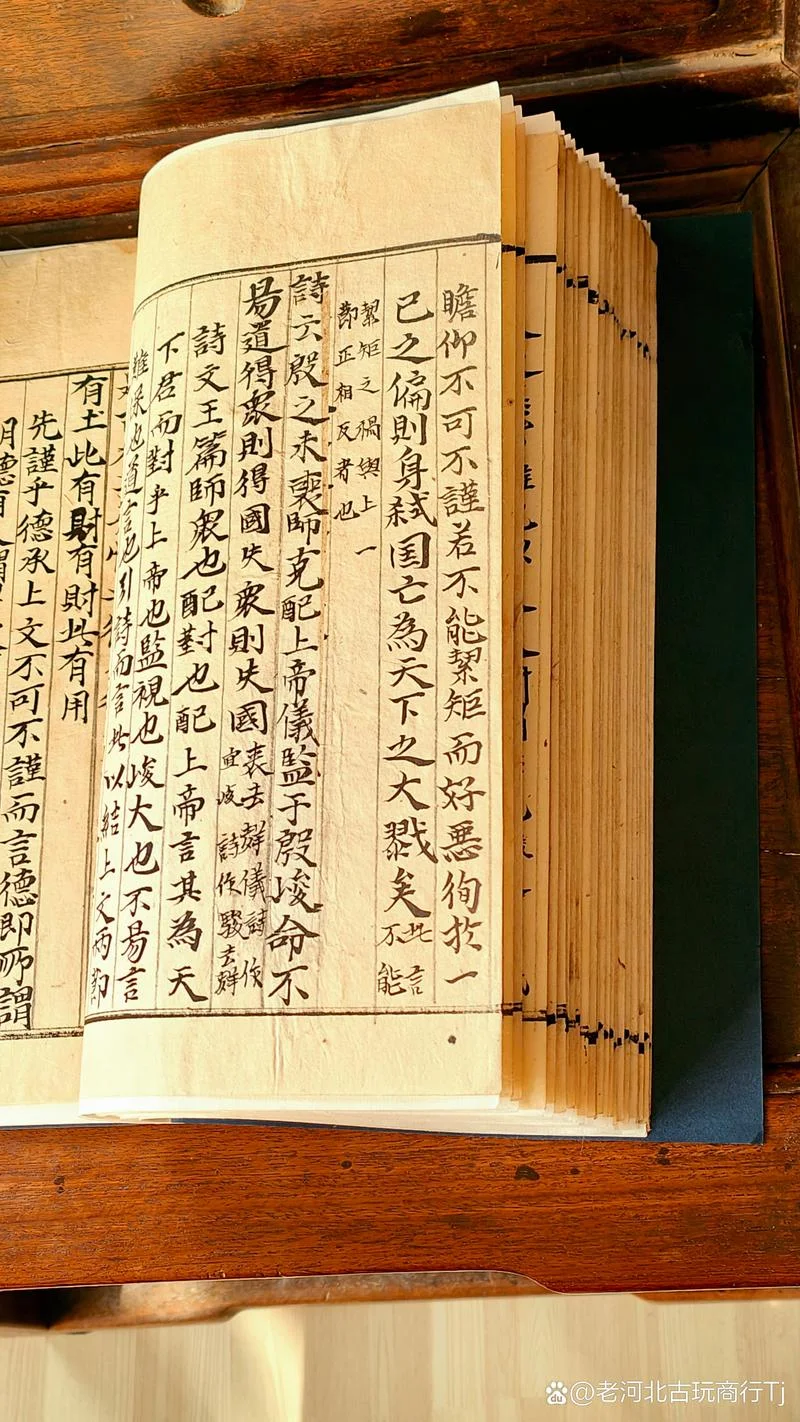 瞻仰不可不謹若不能絜矩而好惡徇於一
己之偏則身弒国亡為天下之大戮矣此言不能
絜矩之禍與上一節正相反者也
詩云殷之未喪師克配上帝儀監于殷峻命不
易道得衆則得國失衆則失國喪去聲儀詩作宜峻詩作駿去聲
詩文王篇師衆也配對也配上帝言其為天
下君而對乎上帝也監視也峻大也不易言
難保也道言也引詩而言此以結上文兩節
有土此有財有財此有用
先謹乎德承上文不可不謹而言德即所謂
明德有
@老河北古玩商行Tj